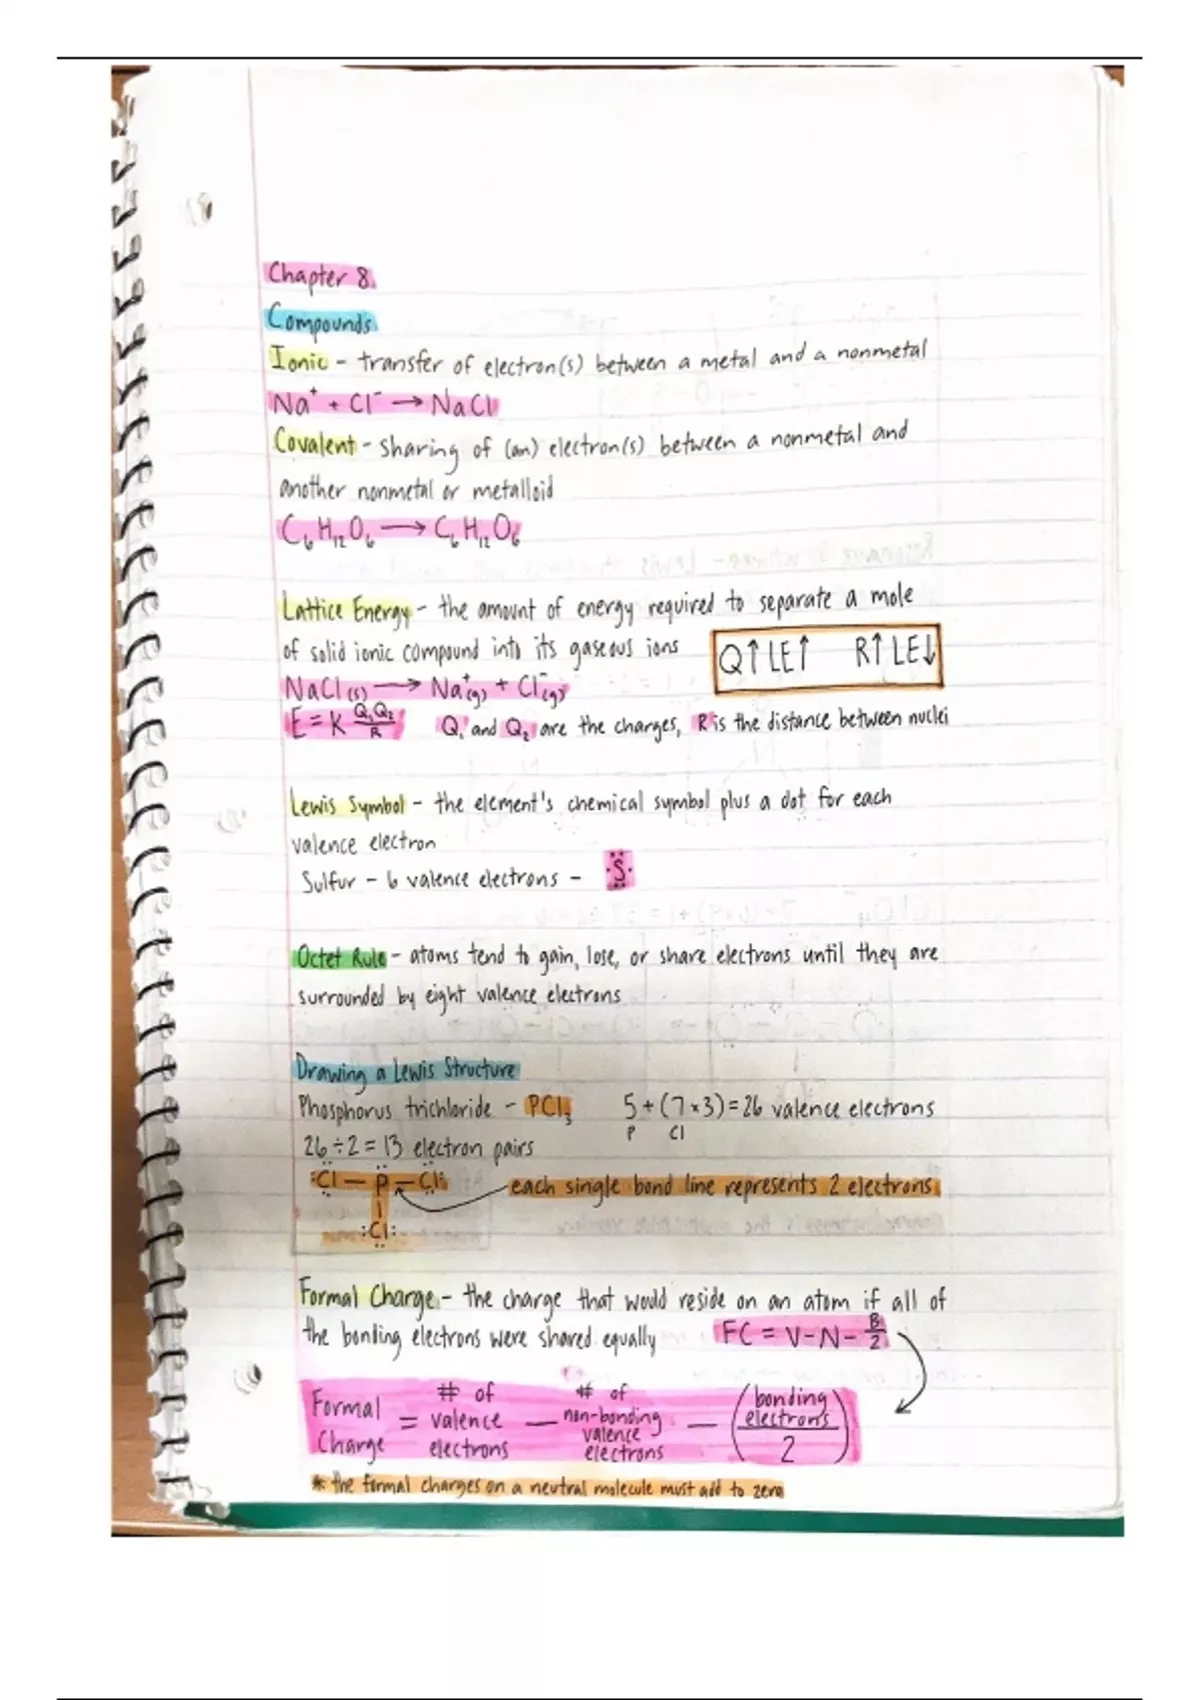 Chapter 8.
Compounds
Ionic - transfer of electron(s) between a metal and a nonmetal
Na⁺ + Cl⁻ → NaCl
Covalent - sharing of (an) electron(s) between a nonmetal and
another nonmetal or metalloid
C₆H₁₂O₆ → C₆H₁₂O₆
Lattice Energy - the amount of energy required to separate a mole
of solid ionic compound into its gaseous ions
Q↑ LE↑ R↑ LE↓
NaCl(s) → Na⁺(g) + Cl⁻(g)
E = K Q₁Q₂/R Q₁ and Q₂ are the charges, R is the distance between nuclei
Lewis Symbol - the element's chemical symbol plus a dot for each
valence electron
Sulfur - 6 valence electrons - S
Octet Rule - atoms tend to gain, lose, or share electrons until they are
surrounded by eight valence electrons
Drawing a Lewis Structure
Phosphorus trichloride - PCl₃ 5 + (7 × 3) = 26 valence electrons
P Cl
26 ÷ 2 = 13 electron pairs
:Cl — P — Cl: each single bond line represents 2 electrons
:Cl:
Formal Charge - the charge that would reside on an atom if all of
the bonding electrons were shared equally FC = V - N - B/2
Formal Charge = # of valence electrons — # of non-bonding valence electrons — (bonding electrons / 2)
* the formal charges on a neutral molecule must add to zero